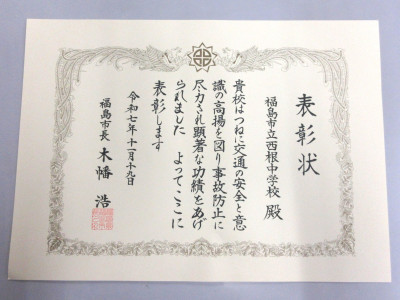 表彰状
福島市立西根中学校 殿
貴校はつねに交通の安全と意
識の高揚を図り事故防止に
尽力され顕著な功績をあげ
られました よってここに
表彰します
令和七年十一月十九日
福島市長 木幡 浩